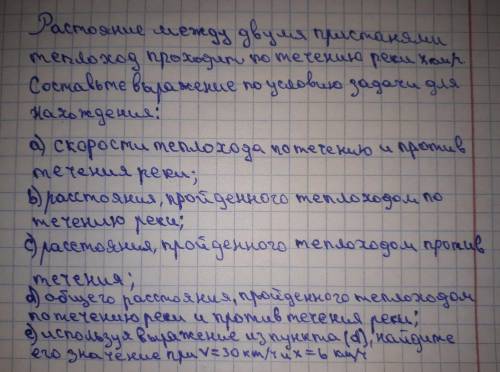 Растояние между двумя пристанями
теплоход проходит по течению реки
Составьте выражение по условию задачи для
нахождения:
а) скорости теплохода по течению и против
течения реки;
в) расстояния, пройденного теплоходом по
течению реки;
с) расстояния, пройденного теплоходом против
течения;
d) общего расстояния, пройденного теплоходом
по течению реки и против течения реки;
е) используя выражение из пункта (d), найдите
его значение при V=30 км/ч и х=6 км/ч